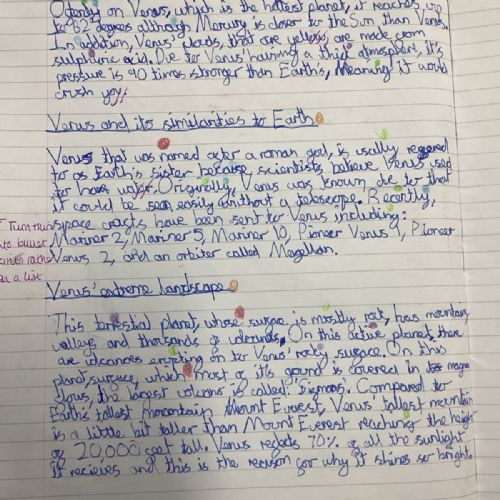 on Venus, which is the hottest planet, it reaches up
to 462 degrees although Mercury is closer to the Sun than Venus.
In addition, Venus' clouds, that are yellow, are made from
sulphuric acid. Due to Venus' having a thick atmosphere, it's
pressure is 90 times stronger than Earth's, Meaning it would
crush you.
Venus and its similarities to Earth
Venus that was named after a roman god, is usally refered
to as Earth's sister because scientists believe Venus used
to have water. Originally, Venus was known due to that
it could be seen easily without a telescope. Recently,
space crafts have been sent to Venus including:
Mariner 2, Mariner 5, Mariner 10, Pioneer Venus 1, Pioneer
Venus 2, and an orbiter called Magellan.
Turn this
to bullet
points rather
than a list
Venus' extreme landscape
This terrestial planet, whose surface is mostly rock, has mountains,
valleys and thousands of volcanoes. On this active planet, there
are volcanoes erupting on to Venus' rocky surface. On this
planet, surface, which most of it's ground is covered in magma
flows, the largest volcano is called: . Compared to
Earth's tallest mountain Mount Everest, Venus' tallest mountain
is a little bit taller than Mount Everest reaching the height
of 20,000 feet tall. Venus reflects 70% of all the sunlight
it recieves and this is the reason for why it shines so bright.